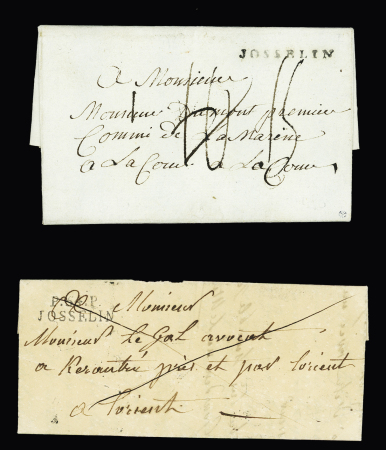 JOSSELIN
A Monsieur
Monsieur Dumont premier
Commi de La Marine
a La Cour a La Cour
P.P.
JOSSELIN
Monsieur
Monsieur le Gal avocat
a près et par Lorient
a Lorient